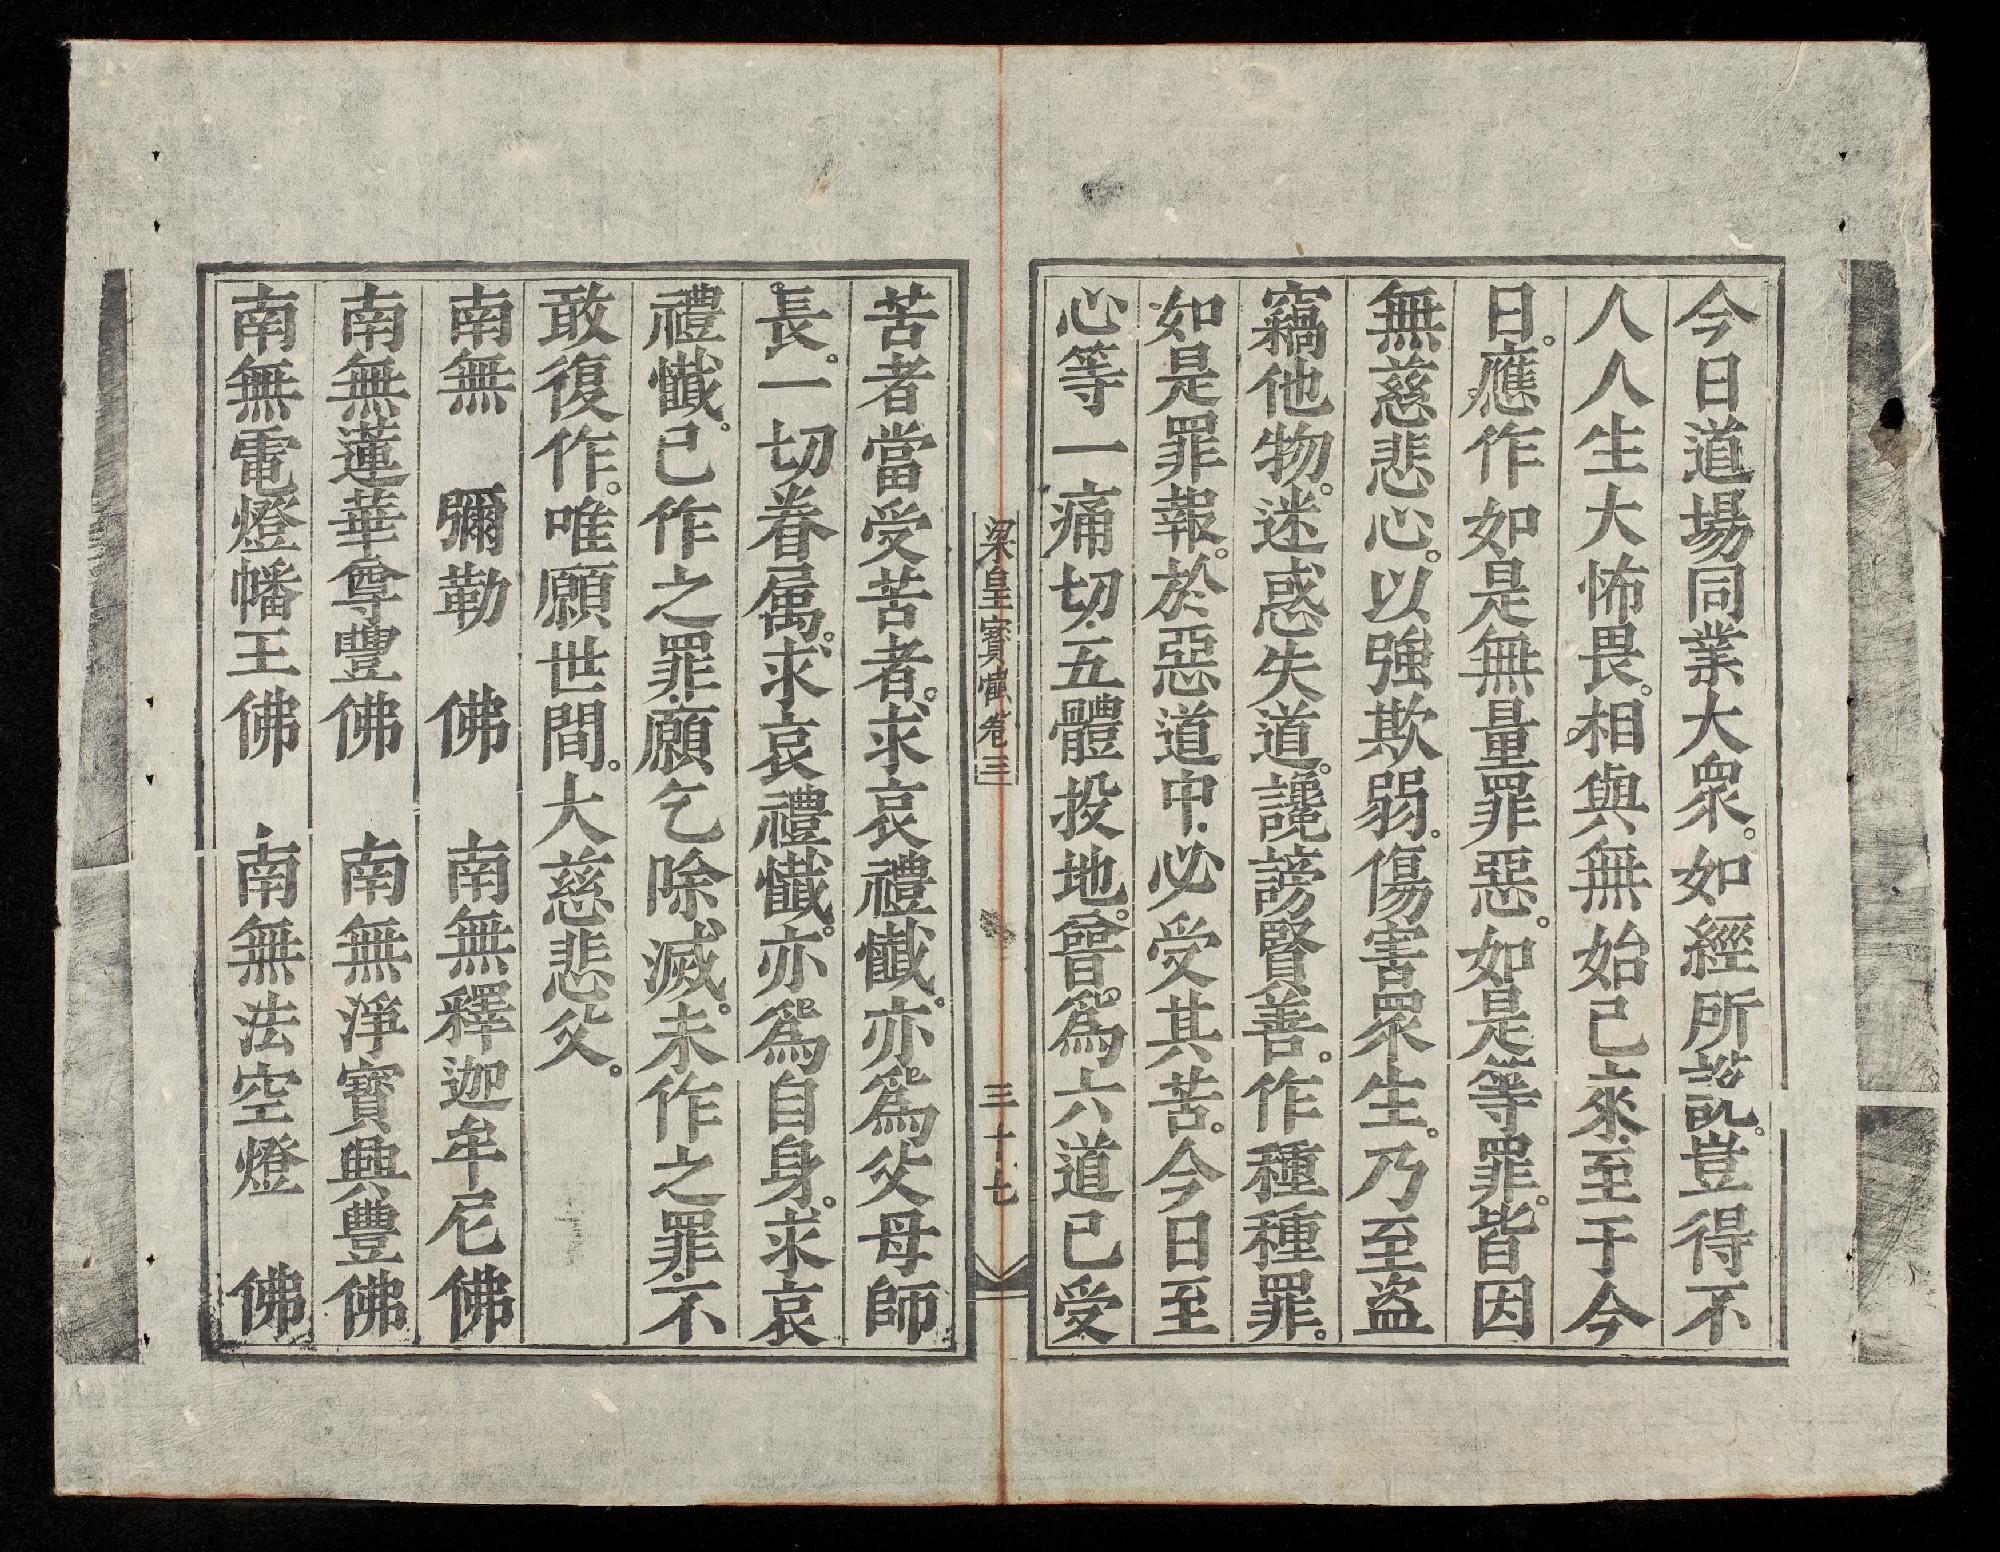 今日道場同業大眾。如經所說。豈得不
人人生大怖畏。相與無始已來。至于今
日。應作如是無量罪惡。如是等罪。皆因
無慈悲心。以強欺弱。傷害眾生。乃至盜
竊他物。迷惑失道。讒謗賢善。作種種罪。
如是罪報。於惡道中。必受其苦。今日至
心等一痛切。五體投地。曾為六道已受
梁皇寶懺卷三
三十七
苦者當受苦者。求哀禮懺。亦為父母師
長。一切眷属。求哀禮懺。亦為自身。求哀
禮懺。已作之罪。願乞除滅。未作之罪。不
敢復作。唯願世間。大慈悲父。
南無 彌勒 佛 南無釋迦牟尼佛
南無蓮華尊豐佛 南無淨寶興豐佛
南無電燈幡王佛 南無法空燈 佛